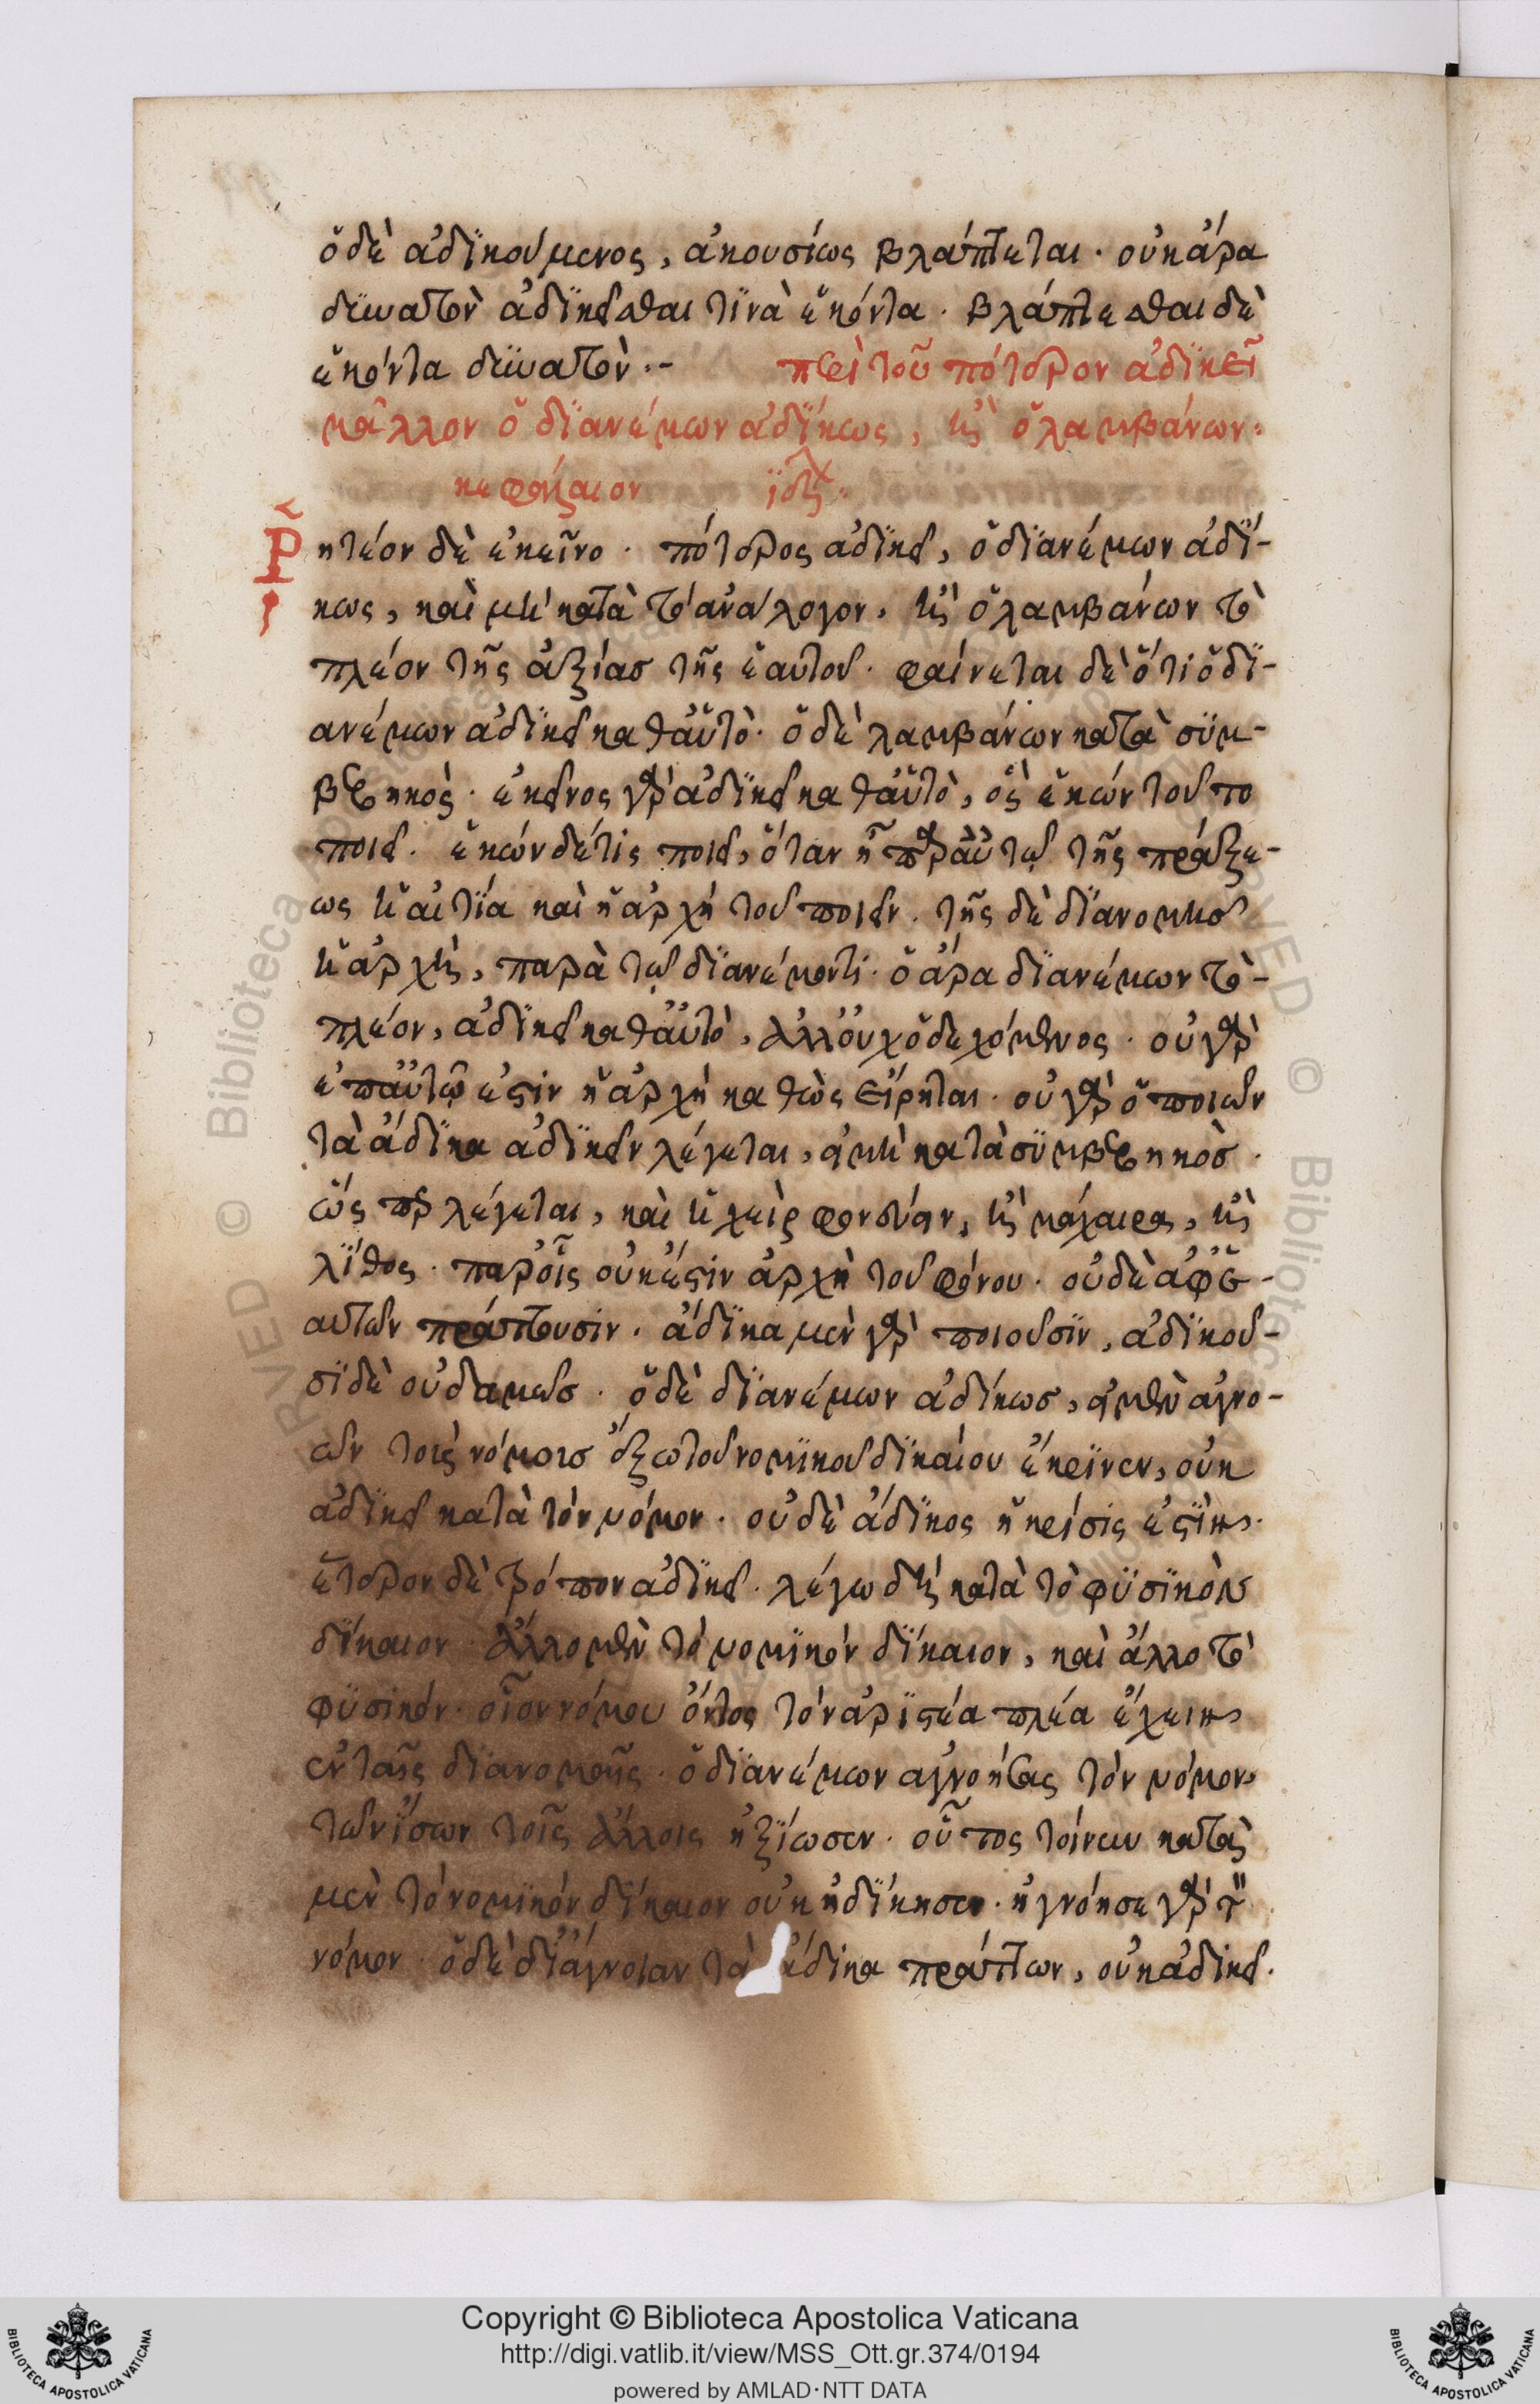 ὁ δὲ ἀδϊκούμενος, ἀκουσίως βλάπτεται· οὐκ ἄρα
δϋνατὸν ἀδϊκεῖσθαι τϊνὰ ἑκόντα· βλάπτεσθαι δὲ
ἑκόντα δϋνατόν :-   περὶ τοῦ πότερον ἀδϊκεῖ
μᾶλλον ὁ δϊανέμων ἀδΐκως, ἢ ὁ λαμβάνων·
κεφάλαιον   ϊδ·
Ῥητέον δὲ ἐκεῖνο· πότερος ἀδϊκεῖ, ὁ δϊανέμων ἀδΐ-
κως, καὶ μὴ κατὰ τὸ ἀνάλογον, ἢ ὁ λαμβάνων τὸ
πλέον τῆς ἀξίας τῆς ἑαυτοῦ· φαίνεται δὲ ὅτι ὁ δϊ-
ανέμων ἀδϊκεῖ καθ' αὑτὸ· ὁ δὲ λαμβάνων κατὰ σϋμ-
βεβηκός· ἐκεῖνος γὰρ ἀδϊκεῖ καθ' αὑτὸ, ὃς ἑκὼν τοῦτο
ποιεῖ· ἑκὼν δέ τις ποιεῖ, ὅταν ᾖ παρ' αὐτῷ τῆς πράξε-
ως ἡ αἰτΐα καὶ ἡ ἀρχὴ τοῦ ποιεῖν· τῆς δὲ δϊανομῆς
ἡ ἀρχὴ, παρὰ τῷ δϊανέμοντι· ὁ ἄρα δϊανέμων τὸ-
πλέον, ἀδϊκεῖ καθ' αὑτὸ, ἀλλ' οὐχ ὁ δεχόμενος· οὐ γὰρ
ἐπ' αὐτῷ ἐστὶν ἡ ἀρχὴ καθὼς εἴρηται· οὐ γὰρ ὁ ποιῶν
τὰ ἄδϊκα ἀδϊκεῖν λέγεται, εἰ μὴ κατὰ σϋμβεβηκὸς·
ὥσπερ λέγεται, καὶ ἡ χεὶρ φονεύειν, ἢ μάχαιρα, ἢ
λΐθος· παρ' οἷς οὐκ ἔστιν ἀρχὴ τοῦ φόνου· οὐδὲ ἀφ' ἑ-
αυτῶν πράττουσιν· ἄδϊκα μὲν γὰρ ποιοῦσϊν, ἀδϊκοῦ-
σϊ δὲ οὐδαμῶς· ὁ δὲ δϊανέμων ἀδίκως, εἰ μὲν ἀγνο-
ῶν τοὺς νόμους ἔξω τοῦ νομϊκοῦ δϊκαίου ἔκρϊνεν, οὐκ
ἀδϊκεῖ κατὰ τὸν νόμον· οὐδὲ ἄδϊκος ἡ κρίσις ἐστΐν·
ἕτερον δὲ τρόπον ἀδϊκεῖ· λέγω δὴ κατὰ τὸ φϋσϊκὸν
δΐκαιον· ἄλλο μὲν τὸ νομϊκὸν δΐκαιον, καὶ ἄλλο τὸ
φϋσικόν· οἷον νόμου ὄντος τὸν ἀρϊστέα πλέα ἔχειν
ἐν ταῖς δϊανομαῖς· ὁ δϊανέμων ἀγνοήσας τὸν νόμον,
τῶν ἴσων τοῖς ἄλλοις ἠξΐωσεν· οὗτος τοίνυν κατὰ
μὲν τὸ νομϊκὸν δΐκαιον οὐκ ἠδΐκησεν· ἠγνόησε γὰρ τὸν
νόμον· ὁ δὲ δι' ἄγνοιαν τὰ ἄδικα πράττων, οὐκ ἀδικεῖ·
Copyright © Biblioteca Apostolica Vaticana
http://digi.vatlib.it/view/MSS_Ott.gr.374/0194
powered by AMLAD·NTT DATA